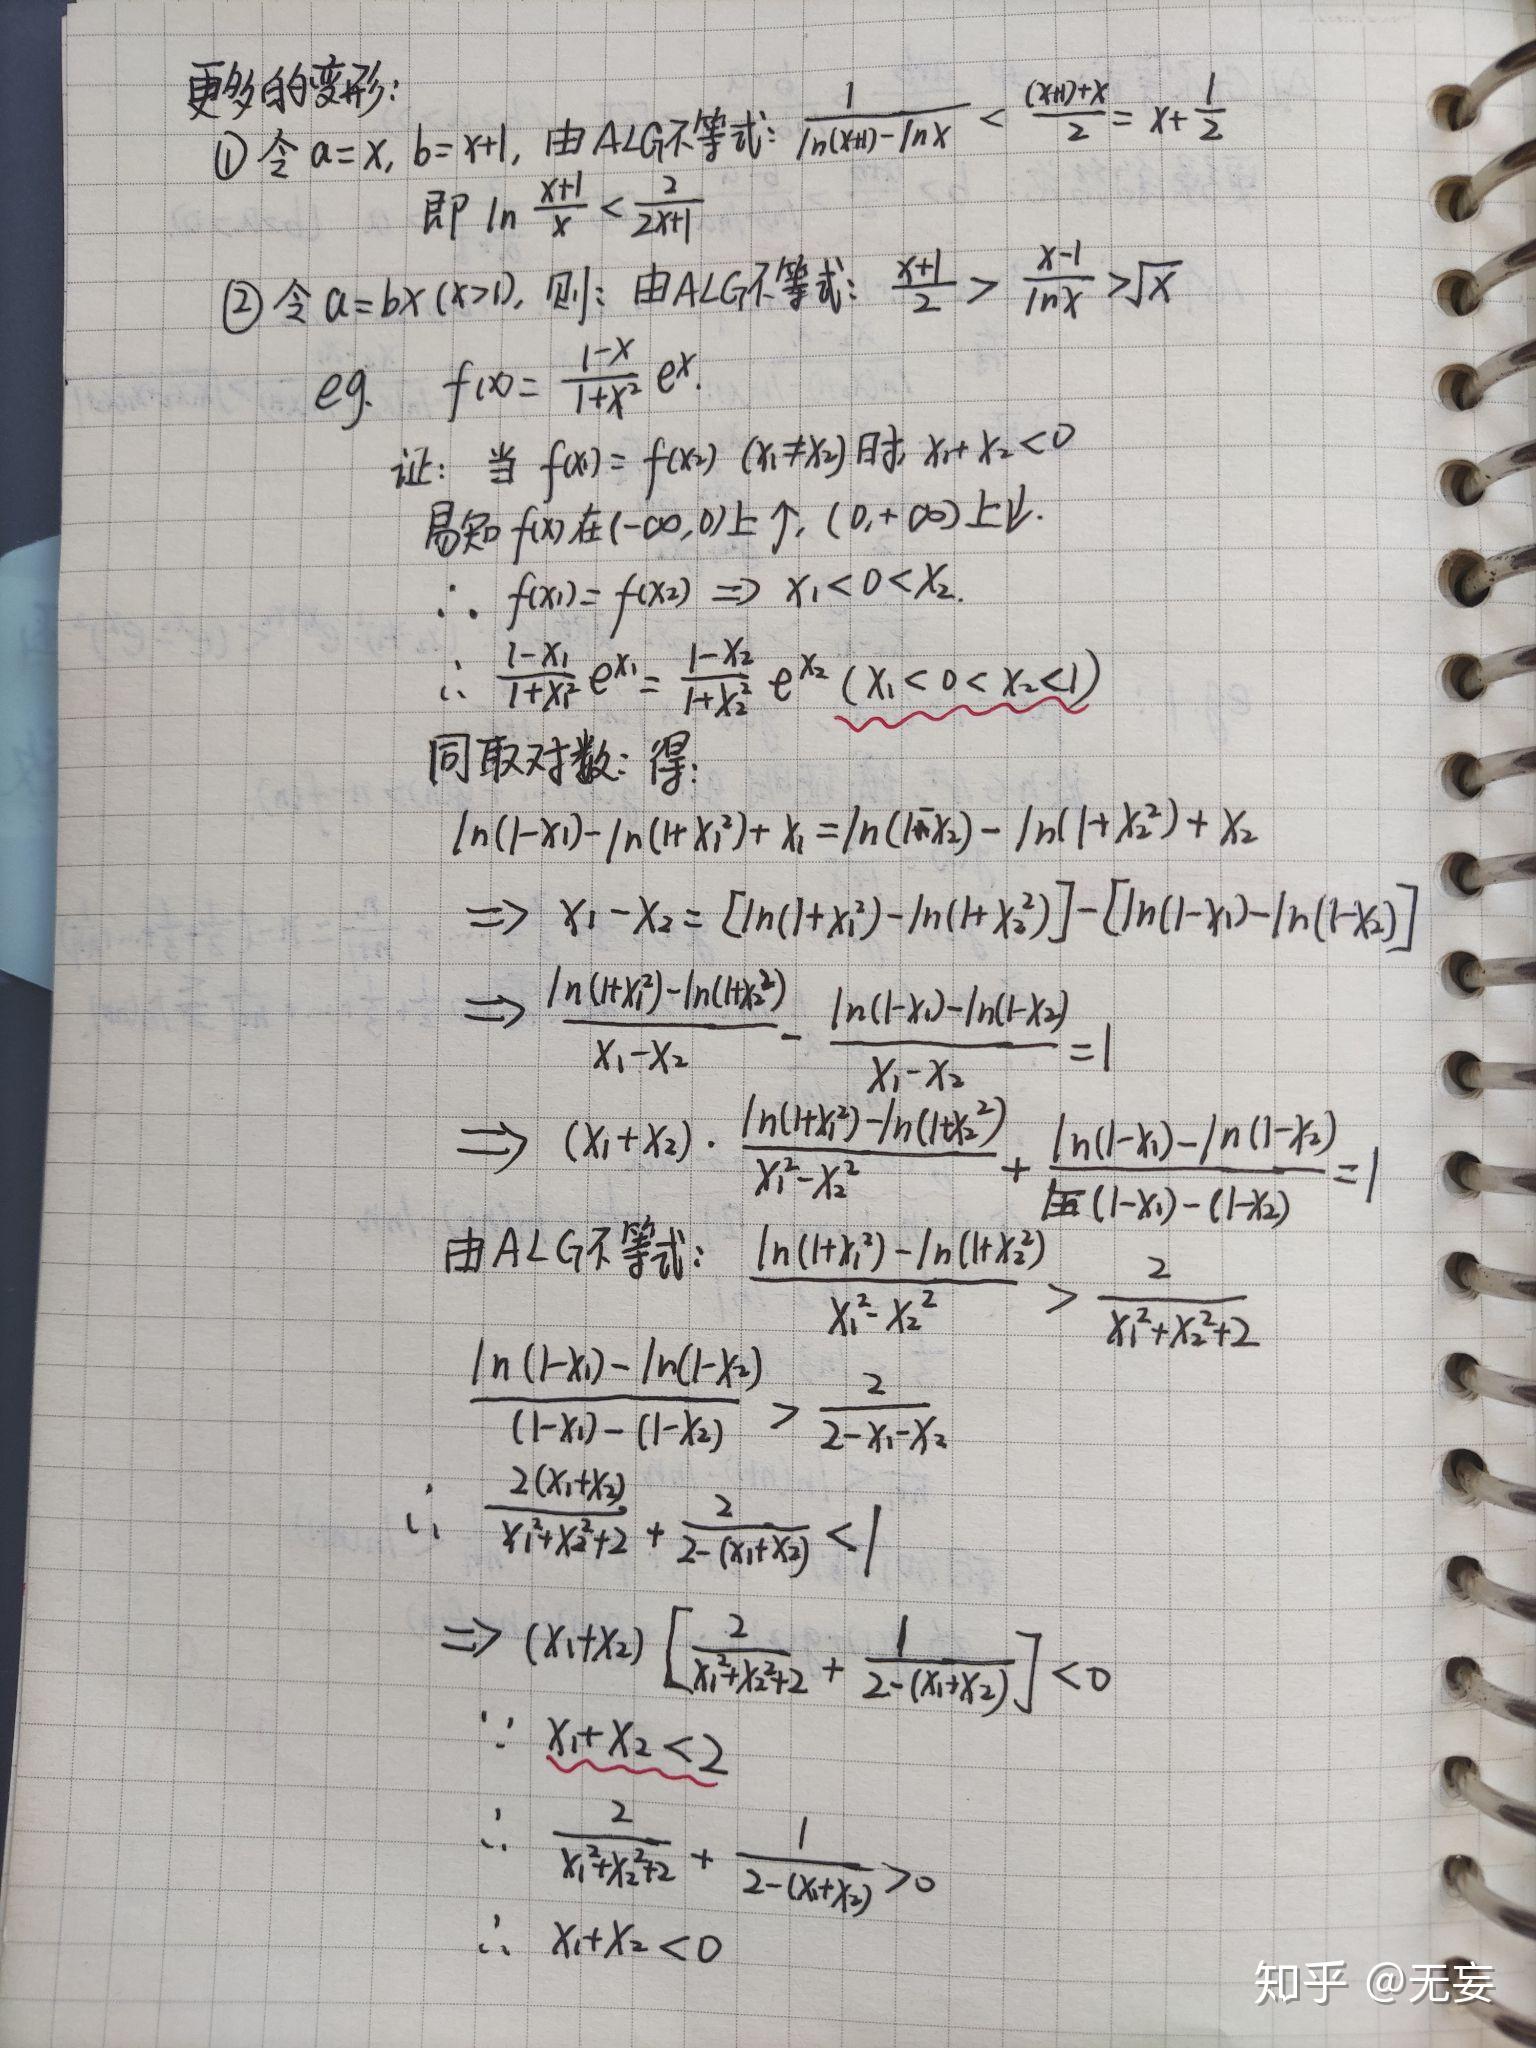 更多的变形:
① 令 a=x, b=x+1, 由ALG不等式: \frac{1}{ln(x+1)-lnx} < \frac{(x+1)+x}{2} = x+\frac{1}{2}
即 ln \frac{x+1}{x} < \frac{2}{2x+1}
② 令 a=bx (x>1), 则: 由ALG不等式: \frac{x+1}{2} > \frac{x-1}{lnx} > \sqrt{x}
eg. f(x)= \frac{1-x}{1+x^2} e^x.
证: 当 f(x₁)=f(x₂) (x₁≠x₂)时, x₁+x₂<0
易知 f(x)在(-∞,0)上↑, (0,+∞)上↓.
∴ f(x₁)=f(x₂) ⇒ x₁<0<x₂.
∴ \frac{1-x₁}{1+x₁²} e^{x₁} = \frac{1-x₂}{1+x₂²} e^{x₂} (x₁<0<x₂<1)
同取对数: 得:
ln(1-x₁)-ln(1+x₁²)+x₁=ln(1-x₂)-ln(1+x₂²)+x₂
⇒ x₁-x₂=[ln(1+x₁²)-ln(1+x₂²)]-[ln(1-x₁)-ln(1-x₂)]
⇒ \frac{ln(1+x₁²)-ln(1+x₂²)}{x₁-x₂} - \frac{ln(1-x₁)-ln(1-x₂)}{x₁-x₂} =1
⇒ (x₁+x₂)·\frac{ln(1+x₁²)-ln(1+x₂²)}{x₁²-x₂²} + \frac{ln(1-x₁)-ln(1-x₂)}{(1-x₁)-(1-x₂)} =1
由ALG不等式: \frac{ln(1+x₁²)-ln(1+x₂²)}{x₁²-x₂²} > \frac{2}{x₁²+x₂²+2}
\frac{ln(1-x₁)-ln(1-x₂)}{(1-x₁)-(1-x₂)} > \frac{2}{2-x₁-x₂}
∴ \frac{2(x₁+x₂)}{x₁²+x₂²+2} + \frac{2}{2-(x₁+x₂)} <1
⇒ (x₁+x₂)[\frac{2}{x₁²+x₂²+2} + \frac{1}{2-(x₁+x₂)}]<0
∵ x₁+x₂<2
∴ \frac{2}{x₁²+x₂²+2} + \frac{1}{2-(x₁+x₂)} >0
∴ x₁+x₂<0
知乎 @无妄